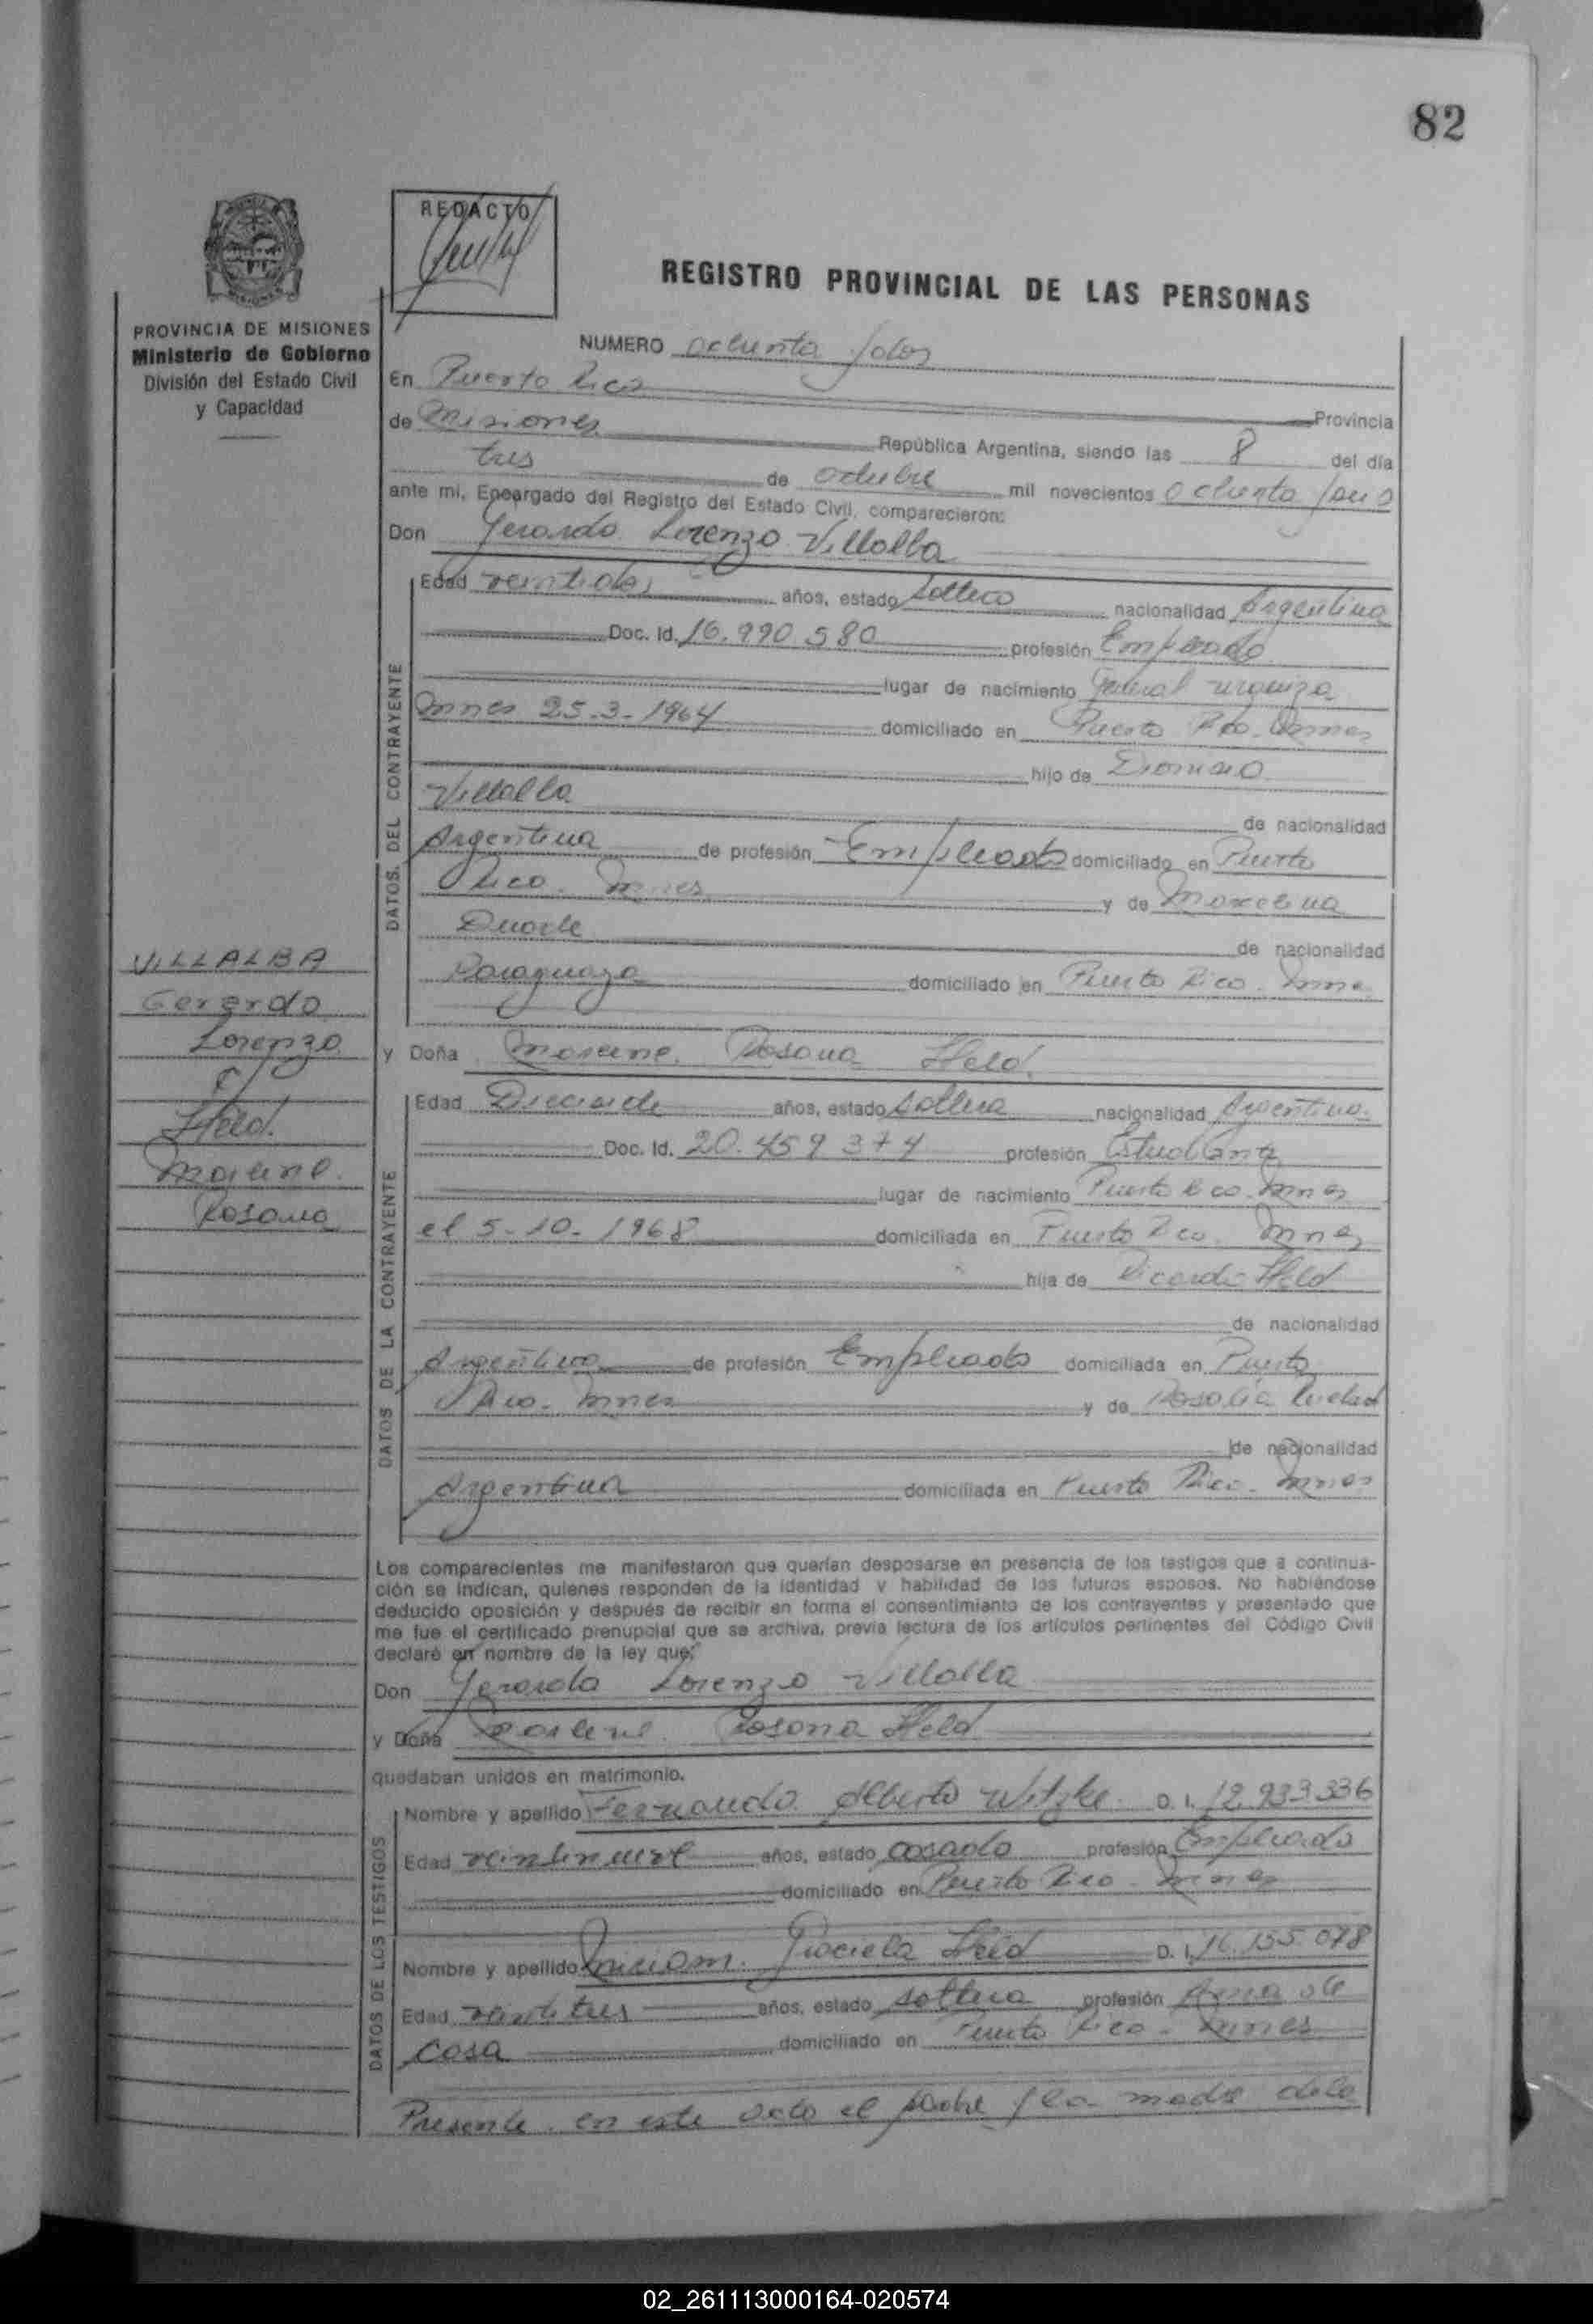 82
REDACTO
REGISTRO PROVINCIAL DE LAS PERSONAS
PROVINCIA DE MISIONES
Ministerio de Gobierno
División del Estado Civil
y Capacidad
NUMERO ochenta y dos
En Puerto Rico
Provincia
de Misiones República Argentina, siendo las 8 del día
tres de octubre mil novecientos ochenta y seis
ante mi, Encargado del Registro del Estado Civil, comparecieron:
Don Gerardo Lorenzo Villalba
DATOS DEL CONTRAYENTE
Edad veintidos años, estado soltero nacionalidad Argentina
Doc. Id. 16.990.580 profesión Empleado
lugar de nacimiento General Urquiza
Mnes 25-3-1964 domiciliado en Puerto Rico. Mnes
hijo de Dionicio
Villalba
de nacionalidad
Argentina de profesión Empleado domiciliado en Puerto
Rico. Mnes y de Marcelina
Duarte
de nacionalidad
Paraguaya domiciliado en Puerto Rico. Mnes
VILLALBA
Gerardo
Lorenzo
c/
Held.
Marlene.
Rosana
y Doña Marlene. Rosana Held.
DATOS DE LA CONTRAYENTE
Edad Diecisiete años, estado soltera nacionalidad Argentina.
Doc. Id. 20.459 374 profesión Estudiante
lugar de nacimiento Puerto Rico. Mnes
el 5-10-1968 domiciliada en Puerto Rico. Mnes
hija de Ricardo Held
de nacionalidad
Argentina de profesión Empleado domiciliada en Puerto
Rico. Mnes y de Rosalia
de nacionalidad
Argentina domiciliada en Puerto Rico. Mnes
Los comparecientes me manifestaron que querían desposarse en presencia de los testigos que a continua-
ción se indican, quienes responden de la identidad y habilidad de los futuros esposos. No habiéndose
deducido oposición y después de recibir en forma el consentimiento de los contrayentes y presentado que
me fue el certificado prenupcial que se archiva, previa lectura de los artículos pertinentes del Código Civil
declaré en nombre de la ley que:
Don Gerardo Lorenzo Villalba
y Doña Marlene. Rosana Held
quedaban unidos en matrimonio.
DATOS DE LOS TESTIGOS
Nombre y apellido Fernando Alberto Witzke. D. I. 12.933.336
Edad veintinueve años, estado casado profesión Empleado
domiciliado en Puerto Rico. Mnes
Nombre y apellido Miriam. Graciela Held D. I. 16.155.078
Edad veintitres años, estado soltera profesión Ama de
casa domiciliado en Puerto Rico. Mnes
Presente en este acto el padre y la madre de la
02_261113000164-020574